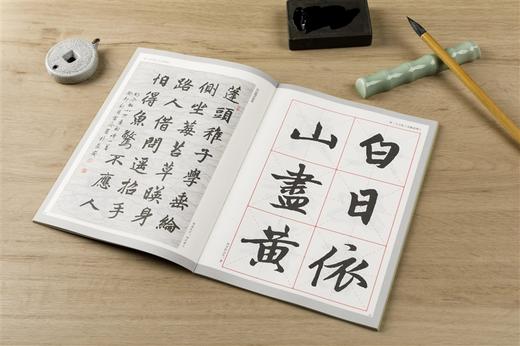 蓬頭稚子學垂綸
側坐莓苔草暎身
路人借問遥招手
怕得魚驚不應人
白日依
山盡黃